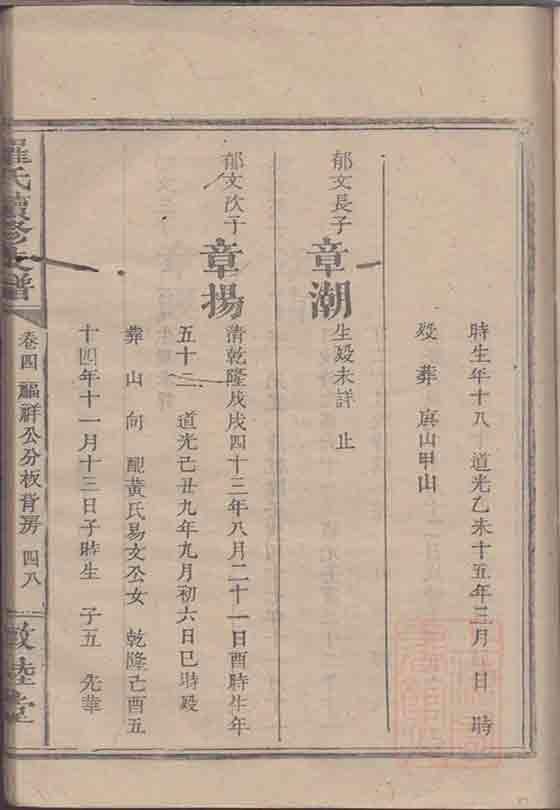 時生年十八 道光乙未十五年三月 日 時
殁 葬 庚山甲山
郁文長子
章潮
生殁未詳 止
郁文次子
章揚
清乾隆戊戌四十三年八月二十一日酉時生年
五十二 道光己丑九年九月初六日巳時殁
葬 山 向 配黃氏易文公女 乾隆己酉五
十四年十一月十三日子時生 子五 先華
羅氏續修支譜
卷四 福祥公分板背房 四八
敦睦堂